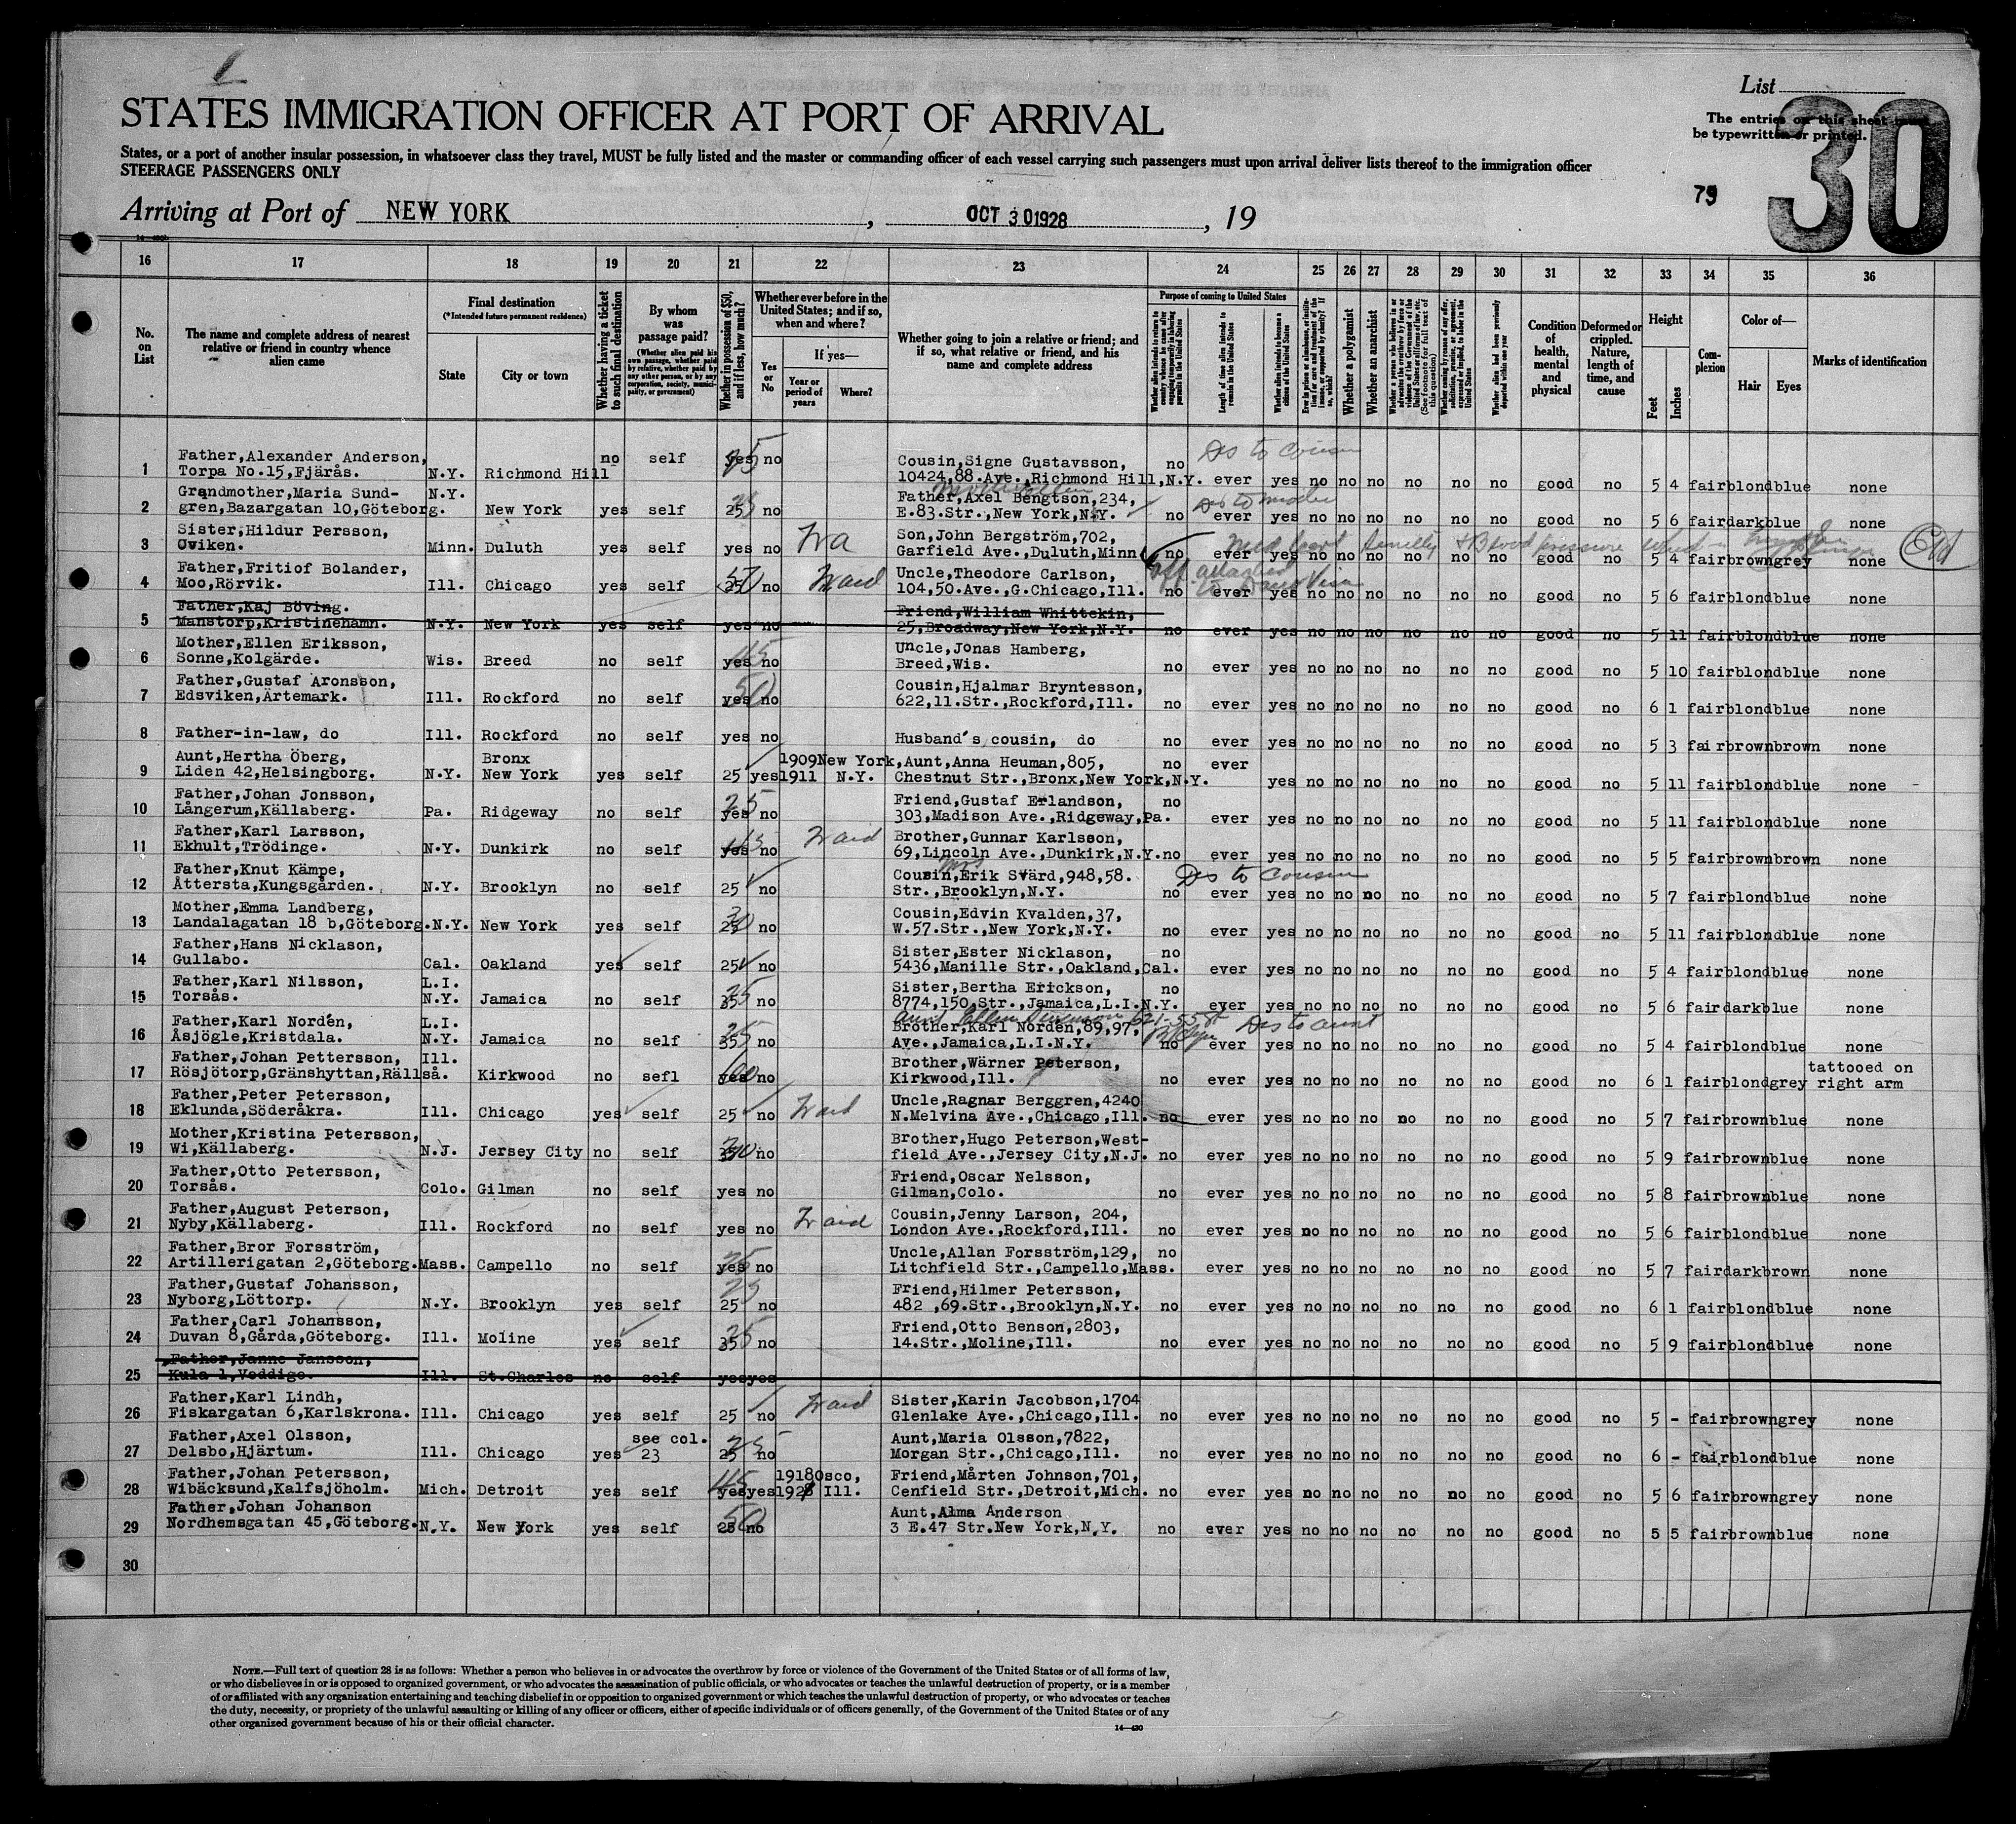 List
30
STATES IMMIGRATION OFFICER AT PORT OF ARRIVAL
The entries on this sheet must
be typewritten or printed.
States, or a port of another insular possession, in whatsoever class they travel, MUST be fully listed and the master or commanding officer of each vessel carrying such passengers must upon arrival deliver lists thereof to the immigration officer
STEERAGE PASSENGERS ONLY
79
Arriving at Port of NEW YORK, OCT 3 0 1928, 19
16 17 18 19 20 21 22 23 24 25 26 27 28 29 30 31 32 33 34 35 36
No. on List
The name and complete address of nearest relative or friend in country whence alien came
Final destination
(*Intended future permanent residence)
State
City or town
Whether having a ticket to such final destination
By whom was passage paid?
(Whether alien paid his own passage, whether paid by relative, whether paid by any other person, or by any corporation, society, municipality, or government)
Whether in possession of $50, and if less, how much?
Whether ever before in the United States; and if so, when and where?
Yes or No
If yes—
Year or period of years
Where?
Whether going to join a relative or friend; and if so, what relative or friend, and his name and complete address
Purpose of coming to United States
Whether alien intends to return to country whence he came after engaging temporarily in laboring pursuits in the United States
Length of time alien intends to remain in the United States
Whether alien intends to become a citizen of the United States
Ever in prison or almshouse, or institution for care and treatment of the insane, or supported by charity? If so, which?
Whether a polygamist
Whether an anarchist
Whether a person who believes in or advocates the overthrow by force or violence of the Government of the United States or all forms of law, etc. (See footnote for full text of this question)
Whether coming by reason of any offer, solicitation, promise, or agreement, expressed or implied, to labor in the United States
Whether alien had been previously deported within one year
Condition of health, mental and physical
Deformed or crippled. Nature, length of time, and cause
Height
Feet
Inches
Complexion
Color of—
Hair
Eyes
Marks of identification
Father,Alexander Anderson, no self yes 25 no Cousin,Signe Gustavsson, no Dis to cousin
1 Torpa No.15,Fjärås. N.Y. Richmond Hill 10424,88.Ave.,Richmond Hill,N.Y. ever yes no no no no no no good no 5 4 fair blond blue none
Grandmother,Maria Sund- N.Y. Father,Axel Bengtson,234, Dis to mother
2 gren,Bazargatan 10,Göteborg. New York yes self 25 no E.83.Str.,New York,N.Y. no ever yes no no no no no no good no 5 6 fair dark blue none
Sister,Hildur Persson, Son,John Bergström,702,
3 Oviken. Minn. Duluth yes self yes no Garfield Ave.,Duluth,Minn no ever yes no no no no no no good no 5 4 fair brown grey none
Father,Fritiof Bolander, Uncle,Theodore Carlson,
4 Moo,Rörvik. Ill. Chicago yes self 25 no 104,50.Ave.,G.Chicago,Ill. no ever yes no no no no no no good no 5 6 fair blond blue none
Father,Kaj Böving. Friend,William Whittekin,
5 Manstorp,Kristinehamn. N.Y. New York yes self yes no 25,Broadway,New York,N.Y. no ever yes no no no no no no good no 5 11 fair blond blue none
Mother,Ellen Eriksson, Uncle,Jonas Hamberg,
6 Sonne,Kolgärde. Wis. Breed no self yes no Breed,Wis. no ever yes no no no no no no good no 5 10 fair blond blue none
Father,Gustaf Aronsson, 50 Cousin,Hjalmar Bryntesson,
7 Edsviken,Ärtemark. Ill. Rockford no self yes no 622,11.Str.,Rockford,Ill. no ever yes no no no no no no good no 6 1 fair blond blue none
8 Father-in-law, do Ill. Rockford no self yes no Husband's cousin, do no ever yes no no no no no no good no 5 3 fair brown brown none
Aunt,Hertha Öberg, Bronx 1909 New York, Aunt,Anna Heuman,805, no ever
9 Liden 42,Helsingborg. N.Y. New York yes self 25 yes 1911 N.Y. Chestnut Str.,Bronx,New York,N.Y. yes no no no no no no good no 5 11 fair blond blue none
Father,Johan Jonsson, 25 Friend,Gustaf Erlandson, no
10 Långerum,Källaberg. Pa. Ridgeway no self yes no 303,Madison Ave.,Ridgeway,Pa. ever yes no no no no no no good no 5 11 fair blond blue none
Father,Karl Larsson, Brother,Gunnar Karlsson,
11 Ekhult,Trödinge. N.Y. Dunkirk no self yes no 69,Lincoln Ave.,Dunkirk,N.Y. no ever yes no no no no no no good no 5 5 fair brown brown none
Father,Knut Kämpe, Cousin,Erik Svärd,948,58. Dis to cousin
12 Åttersta,Kungsgården. N.Y. Brooklyn no self 25 no Str.,Brooklyn,N.Y. no ever yes no no no no no no good no 5 7 fair blond blue none
Mother,Emma Landberg, Cousin,Edvin Kvalden,37,
13 Landalagatan 18 b,Göteborg. N.Y. New York yes self no W.57.Str.,New York,N.Y. no ever yes no no no no no no good no 5 11 fair blond blue none
Father,Hans Nicklason, Sister,Ester Nicklason, no
14 Gullabo. Cal. Oakland yes self 25 no 5436,Manille Str.,Oakland,Cal. ever yes no no no no no no good no 5 4 fair blond blue none
Father,Karl Nilsson, L.I. Sister,Bertha Erickson, no
15 Torsås. N.Y. Jamaica no self 35 no 8774,150,Str.,Jamaica,L.I.N.Y. ever yes no no no no no no good no 5 6 fair dark blue none
Father,Karl Nordén, L.I. Brother,Karl Nordén,89,97, Dis to aunt
16 Åsjögle,Kristdala. N.Y. Jamaica no self 35 no Ave.,Jamaica,L.I.N.Y. no ever yes no no no no no no good no 5 4 fair blond blue none
Father,Johan Pettersson, Ill. Brother,Wärner Peterson, tattooed on
17 Rösjötorp,Gränshyttan,Rällså. Kirkwood no sefl yes no Kirkwood,Ill. no ever yes no no no no no no good no 6 1 fair blond grey right arm
Father,Peter Petersson, Uncle,Ragnar Berggren,4240
18 Eklunda,Söderåkra. Ill. Chicago yes self 25 no N.Melvina Ave.,Chicago,Ill. no ever yes no no no no no no good no 5 7 fair brown blue none
Mother,Kristina Petersson, Brother,Hugo Peterson,West-
19 Wi,Källaberg. N.J. Jersey City no self no field Ave.,Jersey City,N.J. no ever yes no no no no no no good no 5 9 fair brown blue none
Father,Otto Petersson, Friend,Oscar Nelsson,
20 Torsås. Colo. Gilman no self yes no Gilman,Colo. no ever yes no no no no no no good no 5 8 fair brown blue none
Father,August Peterson, Cousin,Jenny Larson, 204,
21 Nyby,Källaberg. Ill. Rockford no self yes no London Ave.,Rockford,Ill. no ever yes no no no no no no good no 5 6 fair blond blue none
Father,Bror Forsström, Uncle,Allan Forsström,129, no
22 Artillerigatan 2,Göteborg. Mass. Campello no self yes no Litchfield Str.,Campello,Mass. ever yes no no no no no no good no 5 7 fair dark brown none
Father,Gustaf Johansson, Friend,Hilmer Petersson,
23 Nyborg,Löttorp. N.Y. Brooklyn yes self 25 no 482 ,69.Str.,Brooklyn,N.Y. no ever yes no no no no no no good no 6 1 fair blond blue none
Father,Carl Johansson, Friend,Otto Benson,2803,
24 Duvan 8,Gårda,Göteborg. Ill. Moline yes self 35 no 14.Str.,Moline,Ill. no ever yes no no no no no no good no 5 9 fair blond blue none
Father,Janne Jansson,
25 Kula 1,Veddige. Ill. St.Charles no self yes yes
Father,Karl Lindh, Sister,Karin Jacobson,1704
26 Fiskargatan 6,Karlskrona. Ill. Chicago yes self 25 no Glenlake Ave.,Chicago,Ill. no ever yes no no no no no no good no 5 - fair brown grey none
Father,Axel Olsson, see col. Aunt,Maria Olsson,7822,
27 Delsbo,Hjärtum. Ill. Chicago yes 23 25 no Morgan Str.,Chicago,Ill. no ever yes no no no no no no good no 6 - fair blond blue none
Father,Johan Petersson, 1918 Osco, Friend,Mårten Johnson,701,
28 Wibäcksund,Kalfsjöholm. Mich. Detroit yes self yes yes 1928 Ill. Cenfield Str.,Detroit,Mich. no ever yes no no no no no no good no 5 6 fair brown grey none
Father,Johan Johanson 50 Aunt,Alma Anderson
29 Nordhemsgatan 45,Göteborg. N.Y. New York yes self 25 no 3 E.47 Str.New York,N.Y. no ever yes no no no no no no good no 5 5 fair brown blue none
30
NOTE.—Full text of question 28 is as follows: Whether a person who believes in or advocates the overthrow by force or violence of the Government of the United States or of all forms of law,
or who disbelieves in or is opposed to organized government, or who advocates the assassination of public officials, or who advocates or teaches the unlawful destruction of property, or is a member
of or affiliated with any organization entertaining and teaching disbelief in or opposition to organized government or which teaches the unlawful destruction of property, or who advocates or teaches
the duty, necessity, or propriety of the unlawful assaulting or killing of any officer or officers, either of specific individuals or of officers generally, of the Government of the United States or of any
other organized government because of his or their official character.
14—430